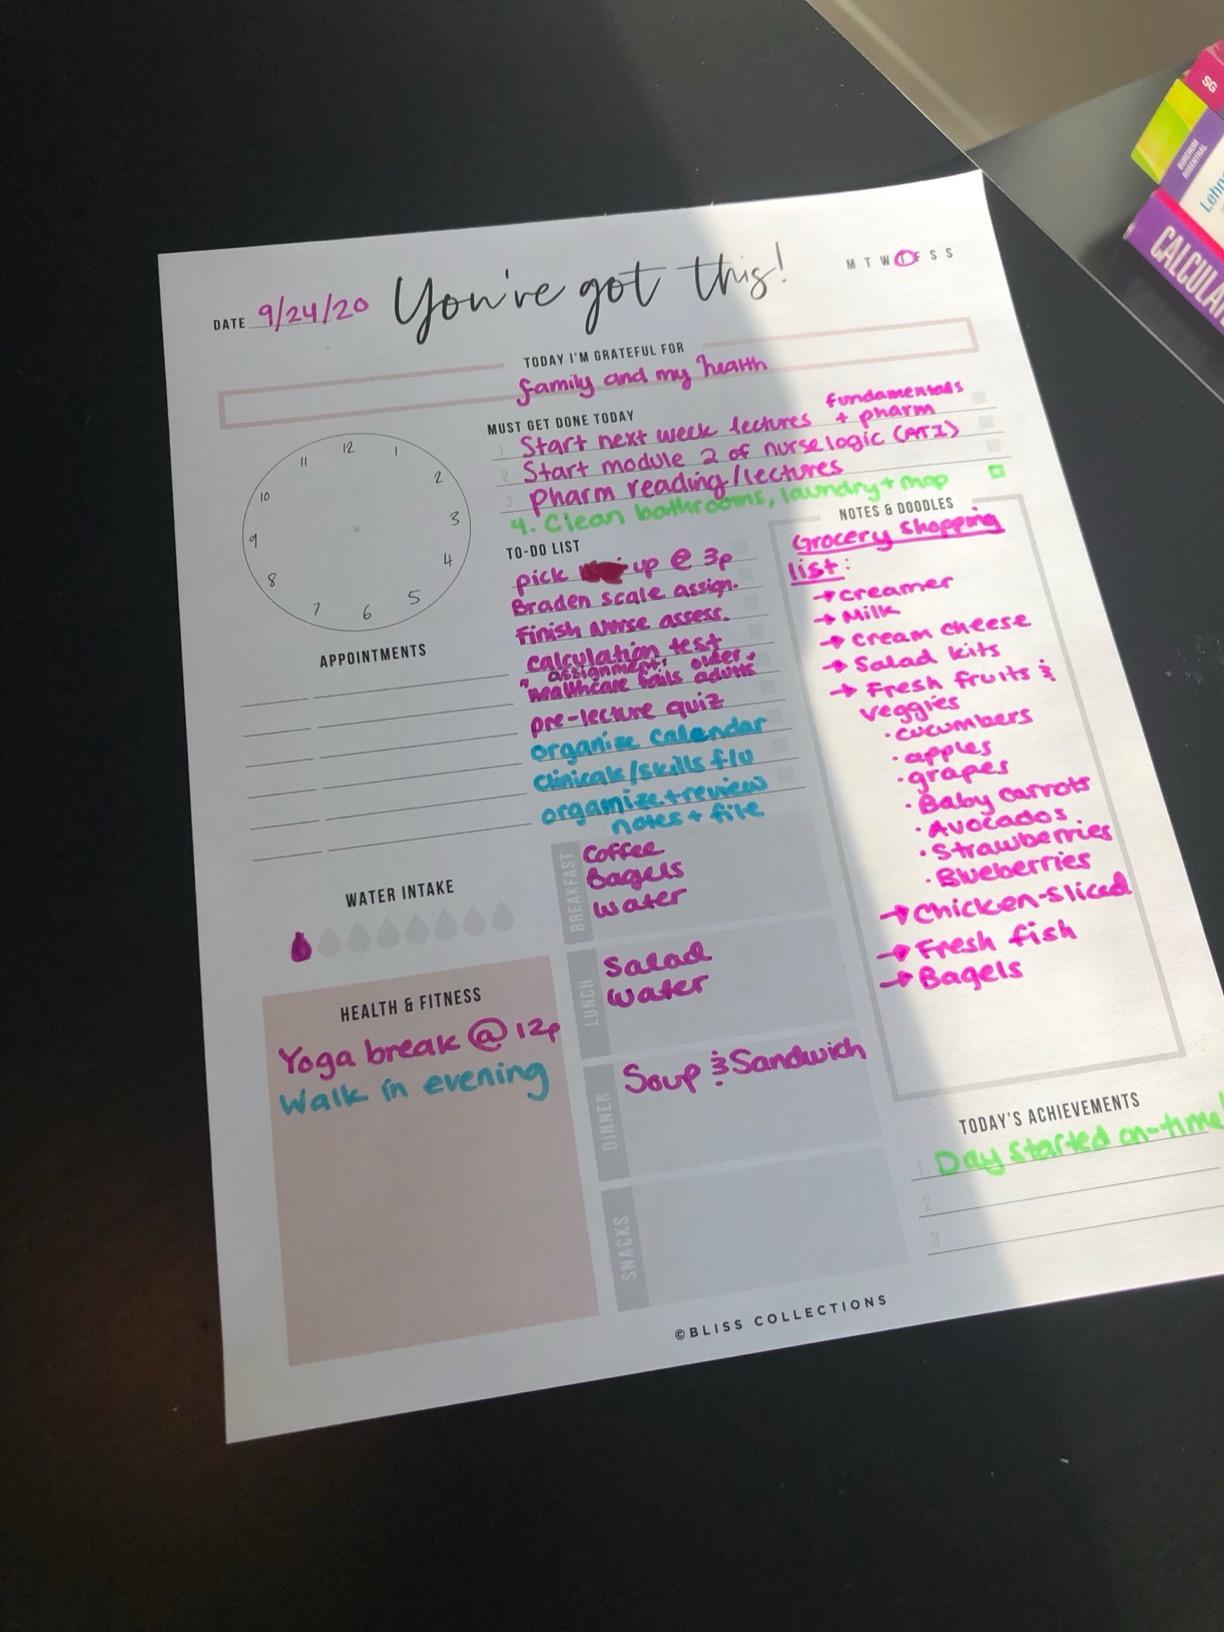 DATE 9/24/20
You've got this!
M T W T F S S
TODAY I'M GRATEFUL FOR
family and my health
MUST GET DONE TODAY
1 Start next week lectures fundamentals + pharm
2 Start module 2 of nurse logic (ATI)
3. Pharm reading/lectures
4. Clean bathrooms, laundry + mop
12
1
2
3
4
5
6
7
8
9
10
11
APPOINTMENTS
TO-DO LIST
pick up @ 3p
Braden scale assign.
Finish Nurse assess.
calculation test
assignment: older +
healthcare fails adults
pre-lecture quiz
organize calendar
clinicals/skills flu
organize + review
notes + file
NOTES & DOODLES
Grocery Shopping
list:
→ creamer
→ Milk
→ cream cheese
→ Salad kits
→ Fresh fruits &
veggies
· cucumbers
· apples
· grapes
· Baby carrots
· Avocados
· Strawberries
· Blueberries
→ Chicken-Sliced
→ Fresh fish
→ Bagels
WATER INTAKE
HEALTH & FITNESS
Yoga break @ 12p
Walk in evening
BREAKFAST
Coffee
Bagels
water
LUNCH
Salad
water
DINNER
Soup & Sandwich
SNACKS
TODAY'S ACHIEVEMENTS
1. Day started on-time!
2.
3.
©BLISS COLLECTIONS
SG
BURCHUM
ROSENTHAL
Lehn
CALCULA